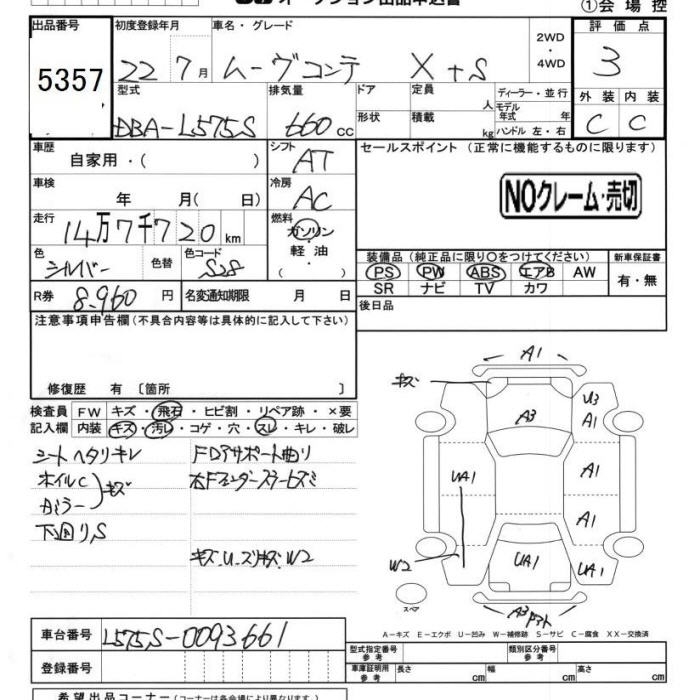 オークション出品申込書
①会場控
出品番号 初度登録年月 車名・グレード 2WD・4WD 評価点
5357 22 7月 ムーヴコンテ X+S 3
型式 排気量 ドア 定員 ディーラー・並行 外装 内装
DBA-L575S 660cc 形状 積載 人 kg モデル年式 年 ハンドル 左・右 C C
車歴 自家用・( ) シフト AT セールスポイント (正常に機能するものに限ります)
車検 年 月( 日) 冷房 AC NOクレーム・売切
走行 14万7千720km 燃料 ガソリン・軽油・( )
色 シルバー 色替 色コード S28 装備品 (純正品に限り○をつけてください) 新車保証書
PS PW ABS エアB AW 有・無
SR ナビ TV カワ
R券 8,960円 名変通知期限 月 日 後日品
注意事項申告欄 (不具合内容等は具体的に記入して下さい)
修復歴 有 〔箇所 〕
検査員 FW キズ・飛石・ヒビ割・リペア跡・×要
記入欄 内装 キズ・汚レ・コゲ・穴・スレ・キレ・破レ
シートヘタリキレ
ホイルC
ミラー キズ
下回りS
FDアサポート曲り
右Fフェンダー
キズ・U・ズ W2
A1
キズ
U3
A3
A1
UA1
A1
A1
W2
UA1
UA1
スペア
A3
A-キズ E-エクボ U-凹み W-補修跡 S-サビ C-腐食 XX-交換済
車台番号 L575S-0093661
型式指定番号 参考 類別区分番号 参考
登録番号
車庫証明用 参考 長さ cm 幅 cm 高さ cm
希望出品コーナー (コーナーは各会場により異なります。)